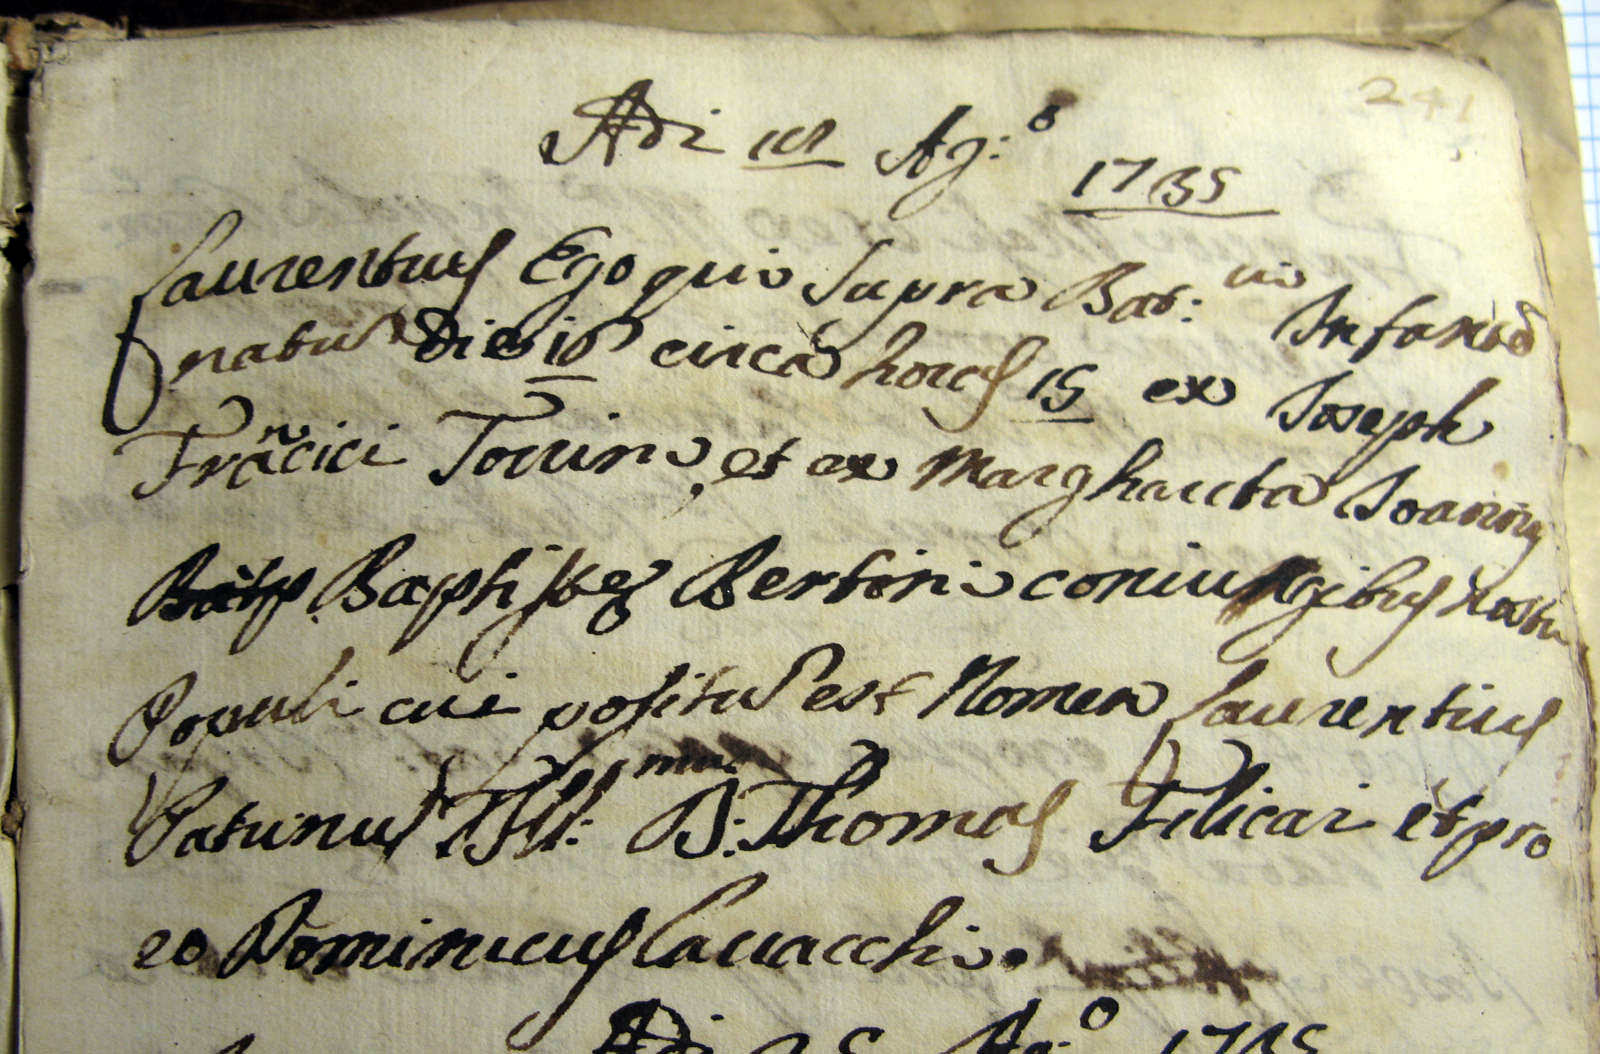 241
Adi 18 Ag:o 1735
Laurentius Ego qui supra Bat:vi Infans
natus Die 18 circa horas 15 ex Joseph
Francici Torrini, et ex Margharita Joannis
Baptistę Bertini coniugibus nostri
Populi cui positus est Nomen Laurentius
Patrinus Ill:mus D: Thomas Filicai et pro
eo Dominicus Cavacchi.
Adi 25 Ag:o 1735